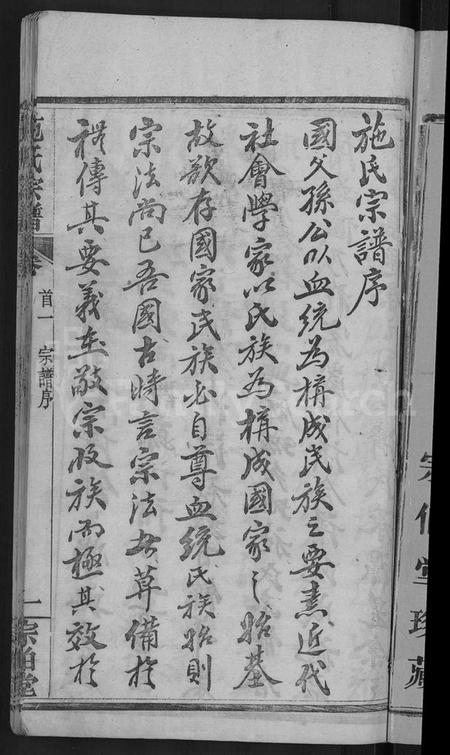 施氏宗譜序
國父孫公以血統為構成民族之要素近代
社會學家以氏族為構成國家之始基
故欲存國家民族必自尊血統氏族始則
宗法尚已吾國古時言宗法者莫備於
禮傳其要義在敬宗收族而極其效於
施氏宗譜 卷
首一 宗譜序
一 宗伯堂
宗伯堂珍藏